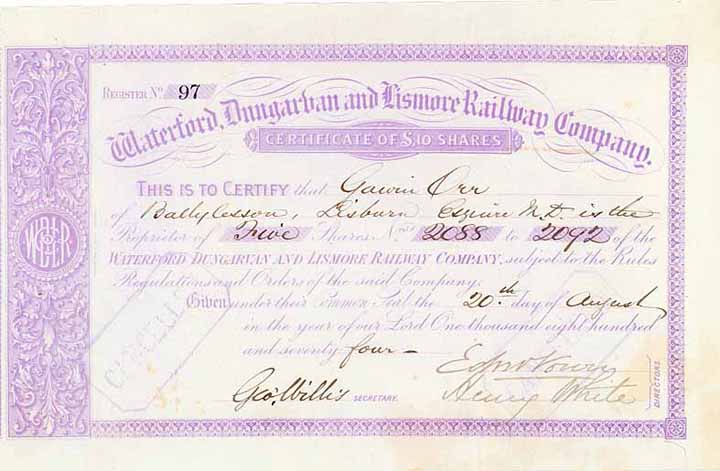 REGISTER No. 97
Waterford, Dungarvan and Lismore Railway Company.
CERTIFICATE OF £10 SHARES
THIS IS TO CERTIFY that Gawin Orr
of Ballylesson, Lisburn Esquire M.D. is the
Proprietor of Five Shares Nos. 2088 to 2092 of the
WATERFORD DUNGARVAN AND LISMORE RAILWAY COMPANY, subject to the Rules
Regulations and Orders of the said Company.
Given under their Common Seal the 20th day of August
in the year of our Lord One thousand eight hundred
and seventy four
Geo. Willis SECRETARY.
Henry White
DIRECTORS.
CANCELLED